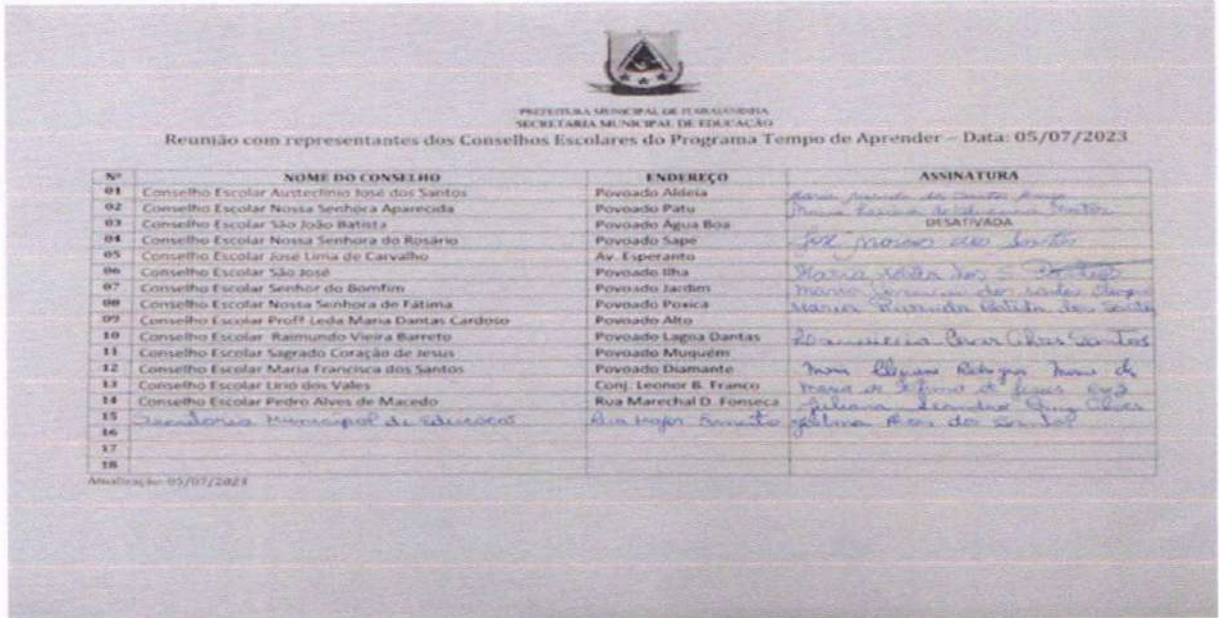 PREFEITURA MUNICIPAL DE ITABAIANINHA
SECRETARIA MUNICIPAL DE EDUCAÇÃO
Reunião com representantes dos Conselhos Escolares do Programa Tempo de Aprender – Data: 05/07/2023
Nº NOME DO CONSELHO ENDEREÇO ASSINATURA
01 Conselho Escolar Austeclínio José dos Santos Povoado Aldeia Maria dos Santos
02 Conselho Escolar Nossa Senhora Aparecida Povoado Patu Maria Santos
03 Conselho Escolar São João Batista Povoado Água Boa DESATIVADA
04 Conselho Escolar Nossa Senhora do Rosário Povoado Sapé dos Santos
05 Conselho Escolar José Lima de Carvalho Av. Esperanto
06 Conselho Escolar São José Povoado Ilha Maria dos S.
07 Conselho Escolar Senhor do Bomfim Povoado Jardim Maria dos Santos
08 Conselho Escolar Nossa Senhora de Fátima Povoado Poxica Maria Batista dos Santos
09 Conselho Escolar Profª Leda Maria Dantas Cardoso Povoado Alto
10 Conselho Escolar Raimundo Vieira Barreto Povoado Lagoa Dantas Santos
11 Conselho Escolar Sagrado Coração de Jesus Povoado Muquém
12 Conselho Escolar Maria Francisca dos Santos Povoado Diamante
13 Conselho Escolar Lírio dos Vales Conj. Leonor B. Franco Maria de
14 Conselho Escolar Pedro Alves de Macedo Rua Marechal D. Fonseca Juliana Cruz Alves
15 Secretaria Municipal de Educação Rua Major dos Santos
16
17
18
Atualização: 05/07/2023